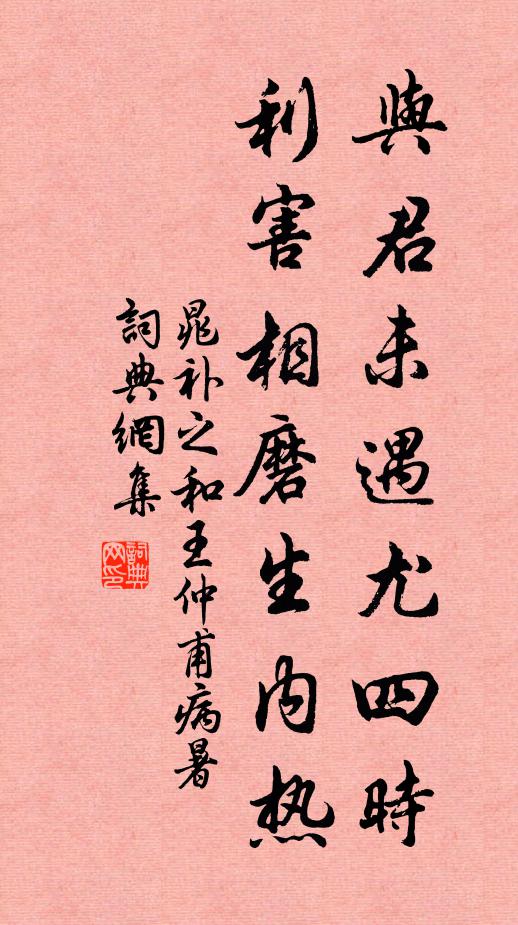 與君未遇尤四時
利害相磨生内热
晁补之和王仲甫病暑
詞典網集
詞典網印